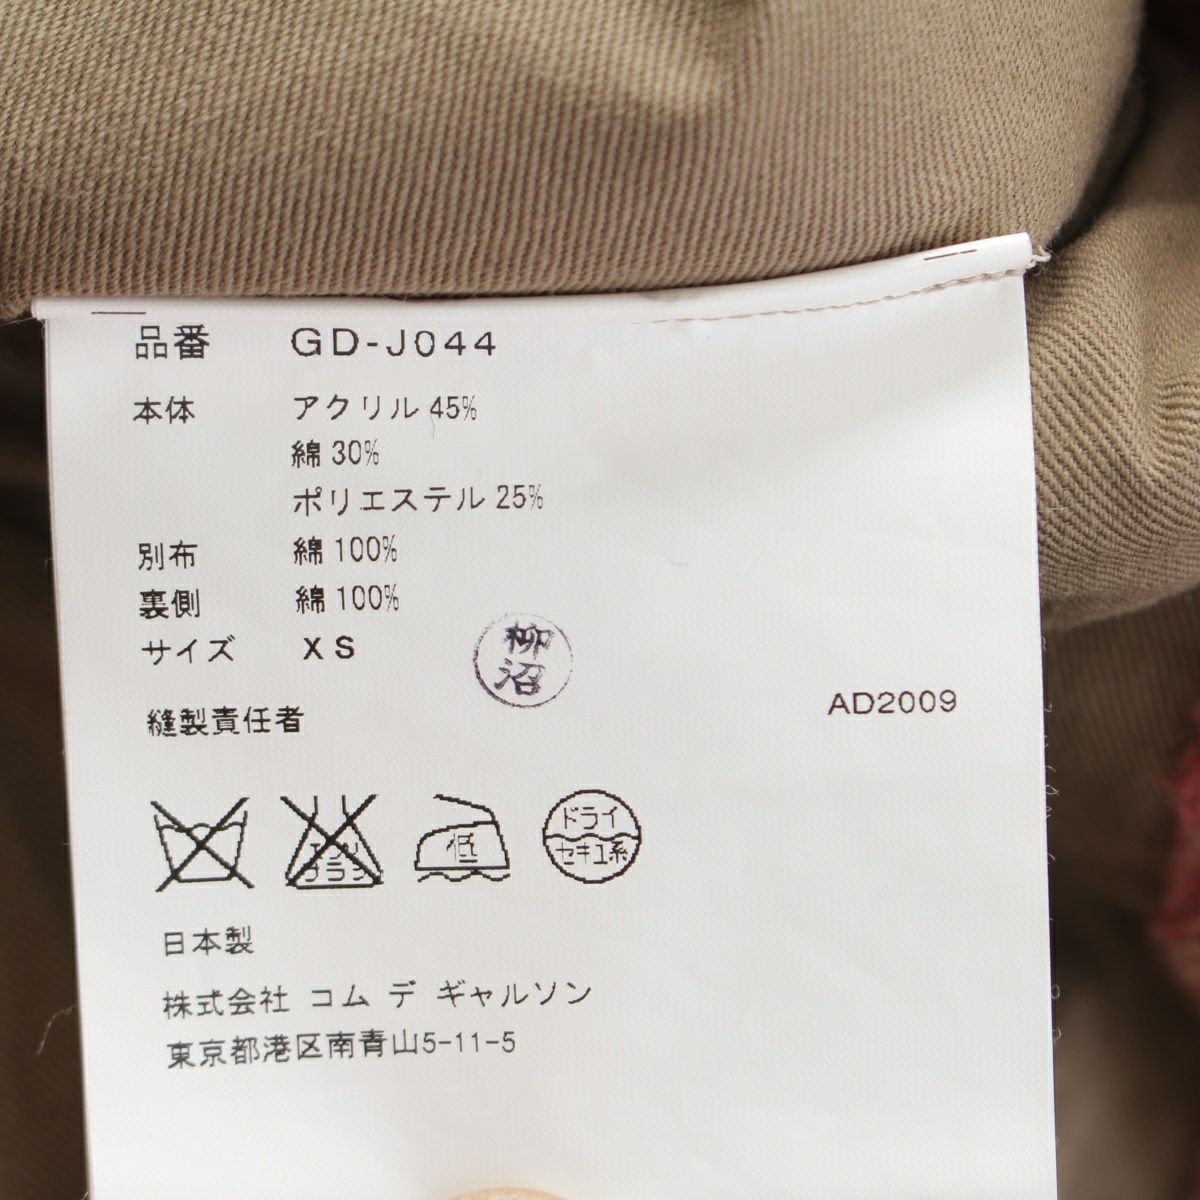 品番 GD-J044
本体 アクリル 45%
綿 30%
ポリエステル 25%
別布 綿 100%
裏側 綿 100%
サイズ XS
柳
沼
縫製責任者
AD2009
エンソ
ブラシ
低
ドライ
セキユ系
日本製
株式会社 コム デ ギャルソン
東京都港区南青山5-11-5